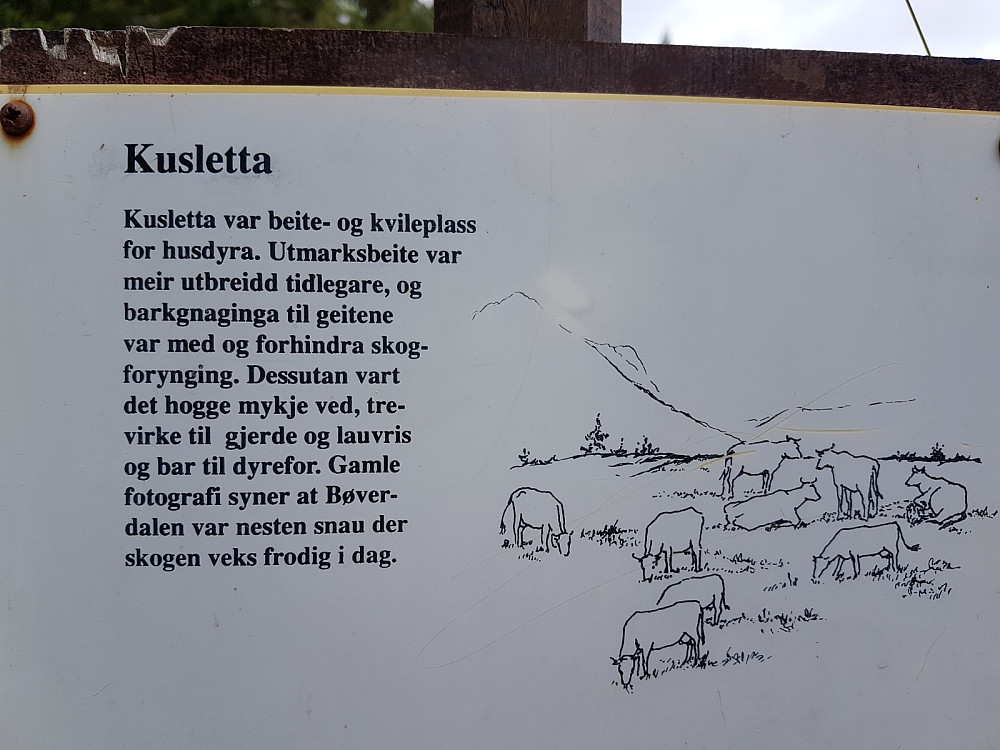 Kusletta
Kusletta var beite- og kvileplass
for husdyra. Utmarksbeite var
meir utbreidd tidlegare, og
barkgnaginga til geitene
var med og forhindra skog-
forynging. Dessutan vart
det hogge mykje ved, tre-
virke til gjerde og lauvris
og bar til dyrefor. Gamle
fotografi syner at Bøver-
dalen var nesten snau der
skogen veks frodig i dag.